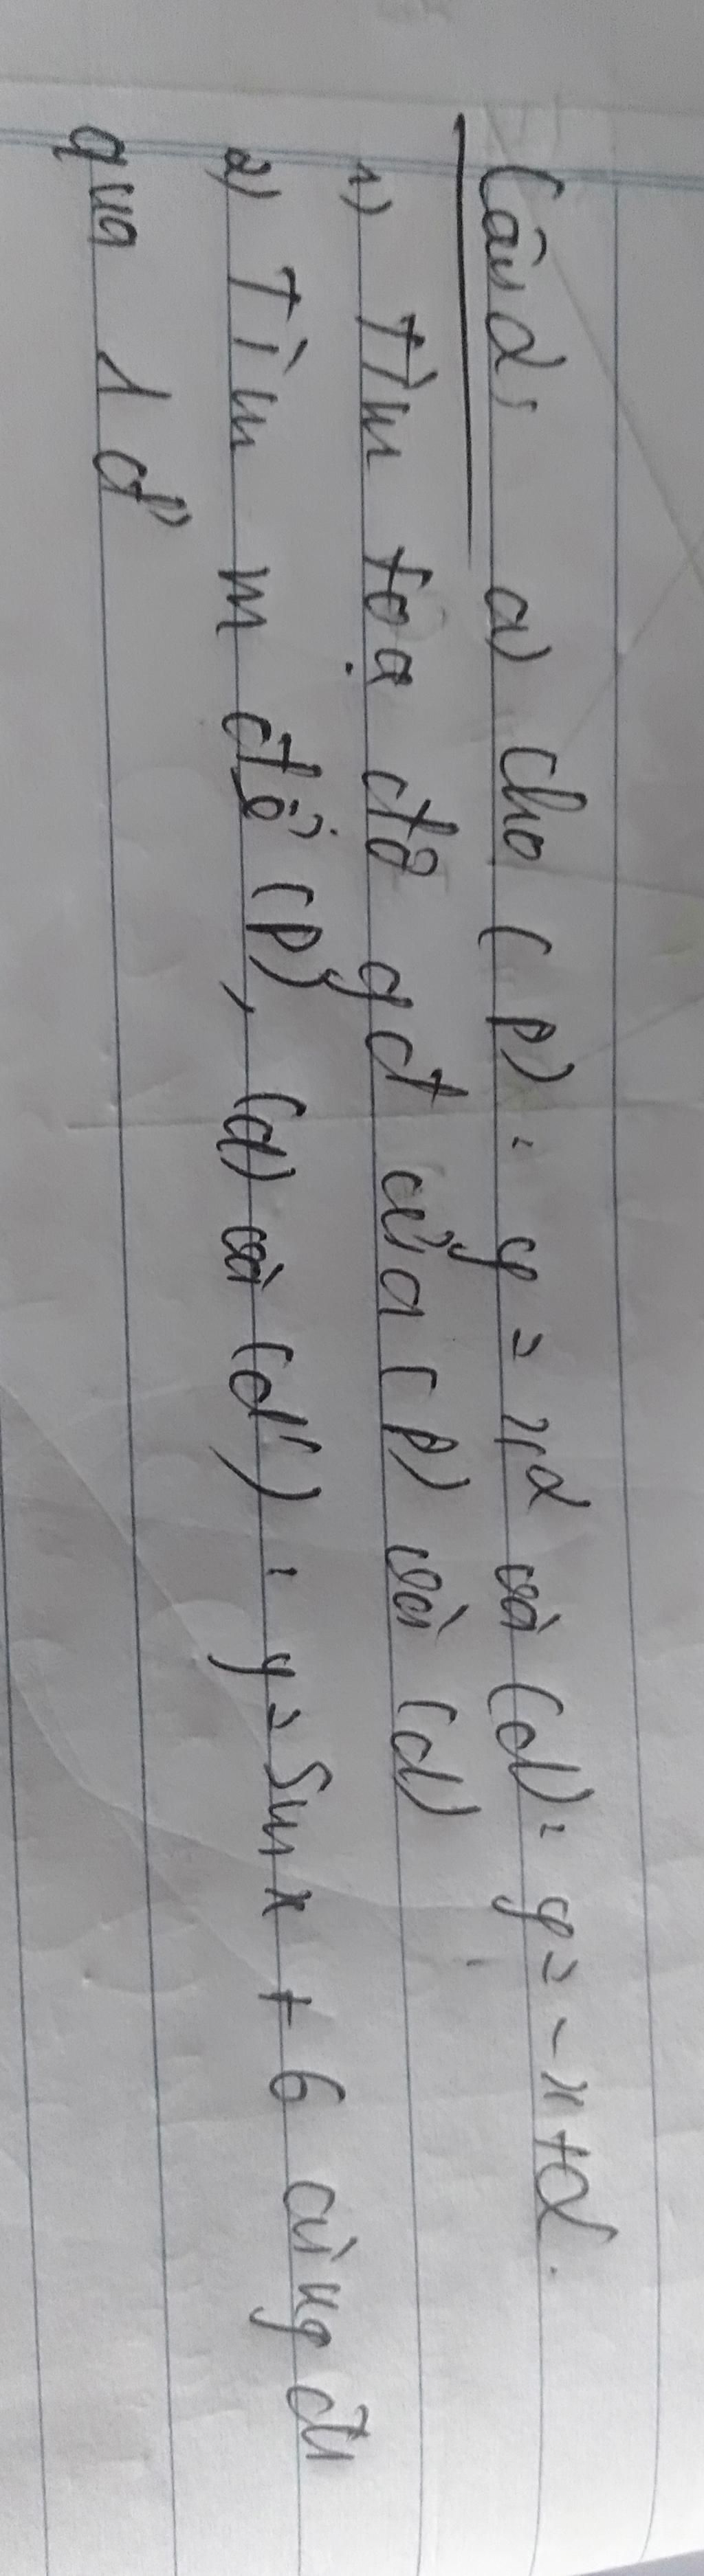 Câu 2: a) Cho (P): y = x² và (d): y = -x + 2.
1) Tìm tọa độ gđ của (P) và (d)
2) Tìm m để (P), (d) và (d'): y = 5mx + 6 cùng đi
qua 1 đ'